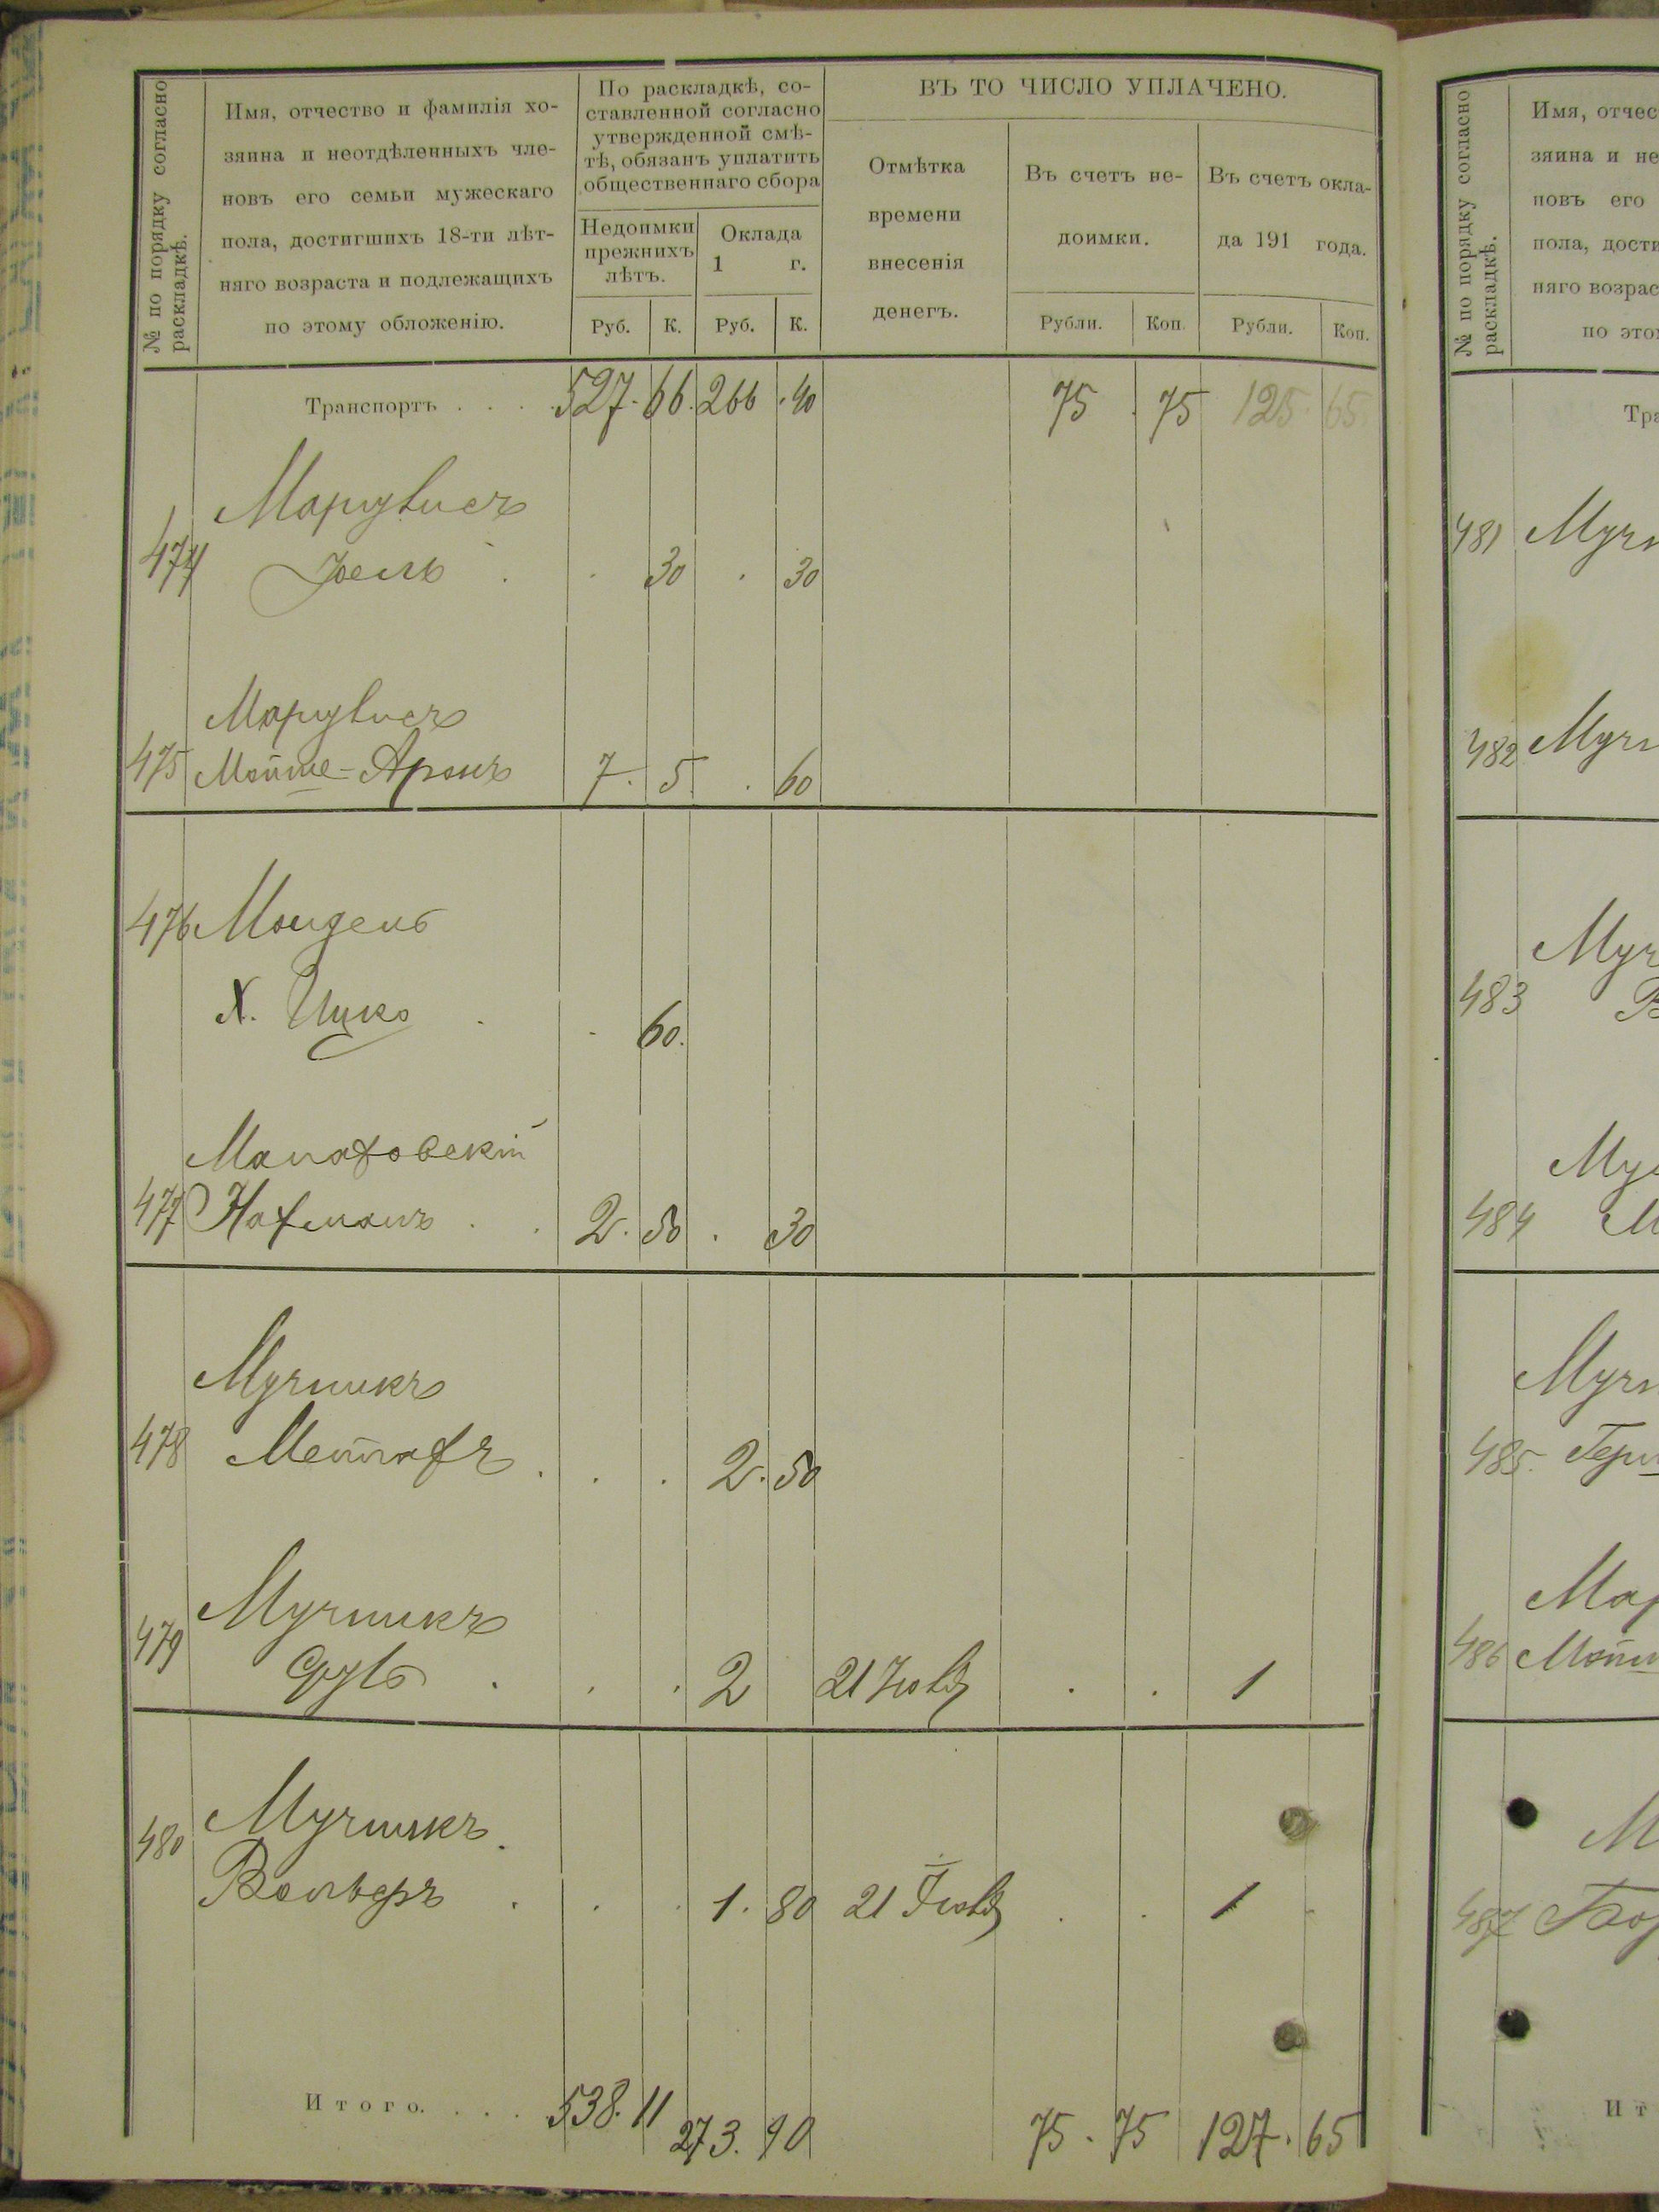 № по порядку согласно раскладкѣ.
Имя, отчество и фамилія хо-
зяина и неотдѣленныхъ чле-
новъ его семьи мужескаго
пола, достигшихъ 18-ти лѣт-
няго возраста и подлежащихъ
по этому обложенію.
По раскладкѣ, со-
ставленной согласно
утвержденной смѣ-
тѣ, обязанъ уплатить
общественнаго сбора
Недоимки
прежнихъ
лѣтъ.
Оклада
1 г.
Руб. К. Руб. К.
ВЪ ТО ЧИСЛО УПЛАЧЕНО.
Отмѣтка
времени
внесенія
денегъ.
Въ счетъ не-
доимки.
Въ счетъ окла-
да 191 года.
Рубли. Коп. Рубли. Коп.
Транспортъ . . . 527. 66. 266 . 40 75 . 75 125. 65.
474
Іоель . . 30 . 30
475 Мойше-Аронъ 7. 5 . 60
476 Мондель
Х. Ицко . . 60.
477 Нахманъ . . 2. 50 . 30
Мучникъ
478 . . . 2. 50
Мучникъ
479 . . . 2 21 . . 1
Мучникъ
480 Вольфъ . . . 1. 80 21 . . 1 .
Итого. . . . 538. 11 273. 90 75. 75 127. 65
№ по порядку согласно раскладкѣ.
Имя, отчес
зяина и не
новъ его
пола, дости
няго возрас
по этом
Тра
481 Мучн
482 Мучн
Муч
483 В
484 М
Мучн
485. Герш
Мар
486 Мойш
М
487
Ит